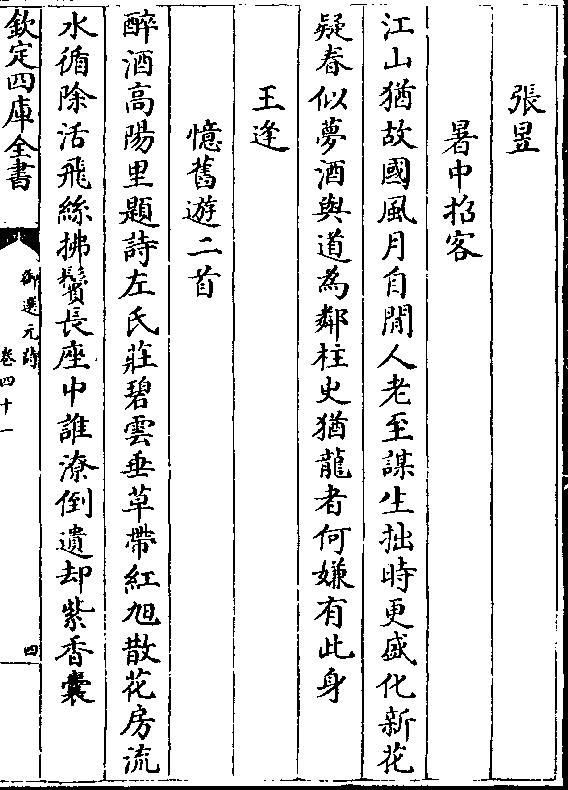 張昱
暑中招客
江山猶故國風月自閒人老至謀生拙時更感化新花
疑春似夢酒與道為鄰柱史猶龍者何嫌有此身
王逢
憶舊遊二首
醉酒高陽里題詩左氏莊碧雲垂草帶紅旭散花房流
水循除活飛絲拂鬢長座中誰潦倒遺却紫香囊
欽定四庫全書
御選元詩
卷四十一
四